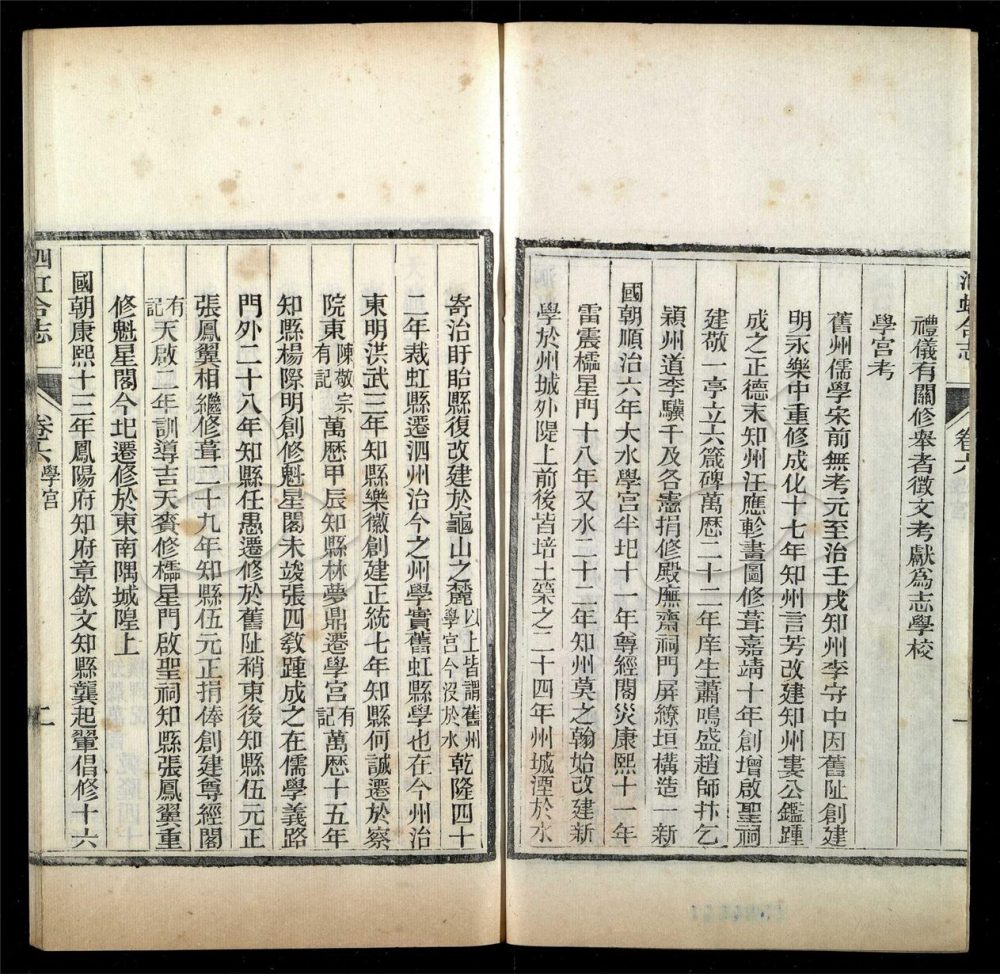 泗虹合志
卷六
一
禮儀有關修舉者徵文考獻爲志學校
學宮考
舊州儒學宋前無考元至治壬戌知州李守中因舊阯創建
明永樂中重修成化十七年知州言芳改建知州婁公鑑踵
成之正德末知州汪應軫畫圖修葺嘉靖十年創增啟聖祠
建敬一亭立六箴碑萬歷二十二年庠生蕭鳴盛趙師抃乞
潁州道李驥千及各憲捐修殿廡齋祠門屏繚垣構造一新
國朝順治六年大水學宮半圮十一年尊經閣災康熙十一年
雷震櫺星門十八年又水二十二年知州莫之翰始改建新
學於州城外隄上前後皆培土築之二十四年州城湮於水
寄治盱眙縣復改建於龜山之麓以上皆謂舊州學宮今沒於水乾隆四十
二年裁虹縣遷泗州治今之州學實舊虹縣學也在今州治
東明洪武三年知縣樂徽創建正統七年知縣何誠遷於察
院東陳敬宗有記萬歷甲辰知縣林夢鼎遷學宮有記萬歷十五年
知縣楊際明創修魁星閣未竣張四教踵成之在儒學義路
門外二十八年知縣任愚遷修於舊阯稍東後知縣伍元正
張鳳翼相繼修葺二十九年知縣伍元正捐俸創建尊經閣
有記天啟二年訓導吉天賚修櫺星門啟聖祠知縣張鳳翼重
修魁星閣今圮遷修於東南隅城隍上
國朝康熙十三年鳳陽府知府章欽文知縣龔起翬倡修十六
泗虹合志
卷六
學宮
二